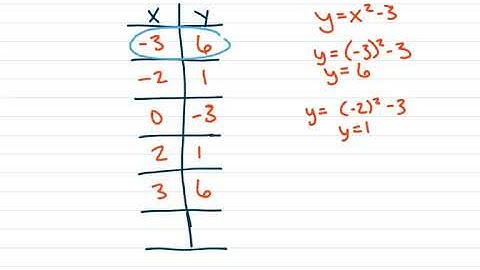 X Y
-3 6
-2 1
0 -3
2 1
3 6
y=x²-3
y=(-3)²-3
y=6
y=(-2)²-3
y=1